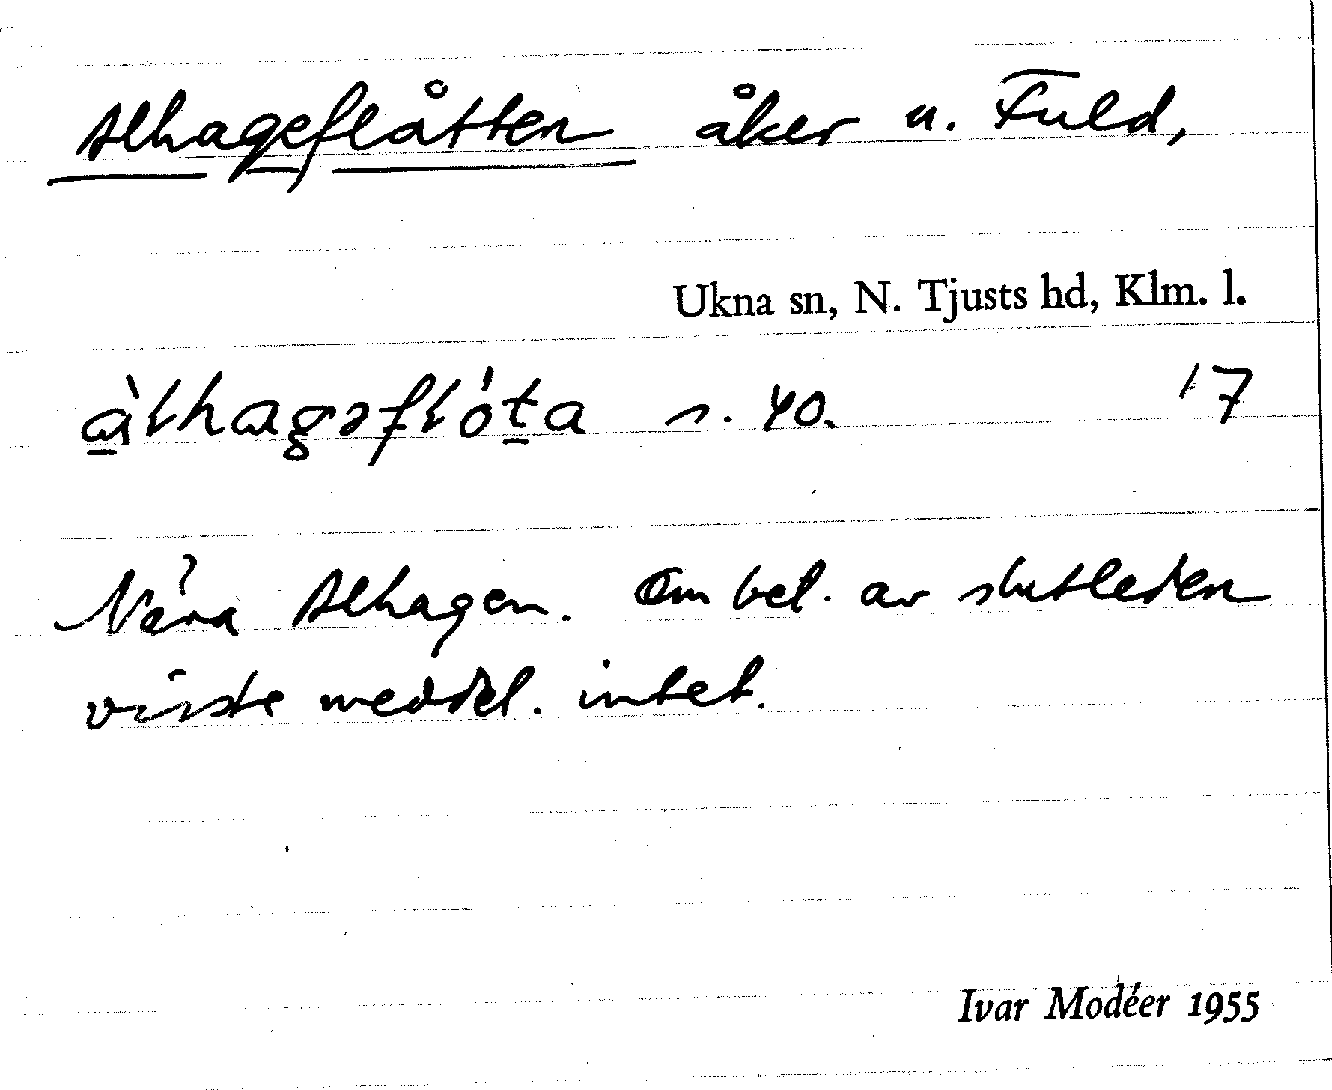 Alhageflåtten åker u. Fuld,
Ukna sn, N. Tjusts hd, Klm. l.
ȧ̱̀lhagəflót̠a s. 40. 17
Nära Alhagen. Om bet. av slutleden
visste meddel. intet.
Ivar Modéer 1955